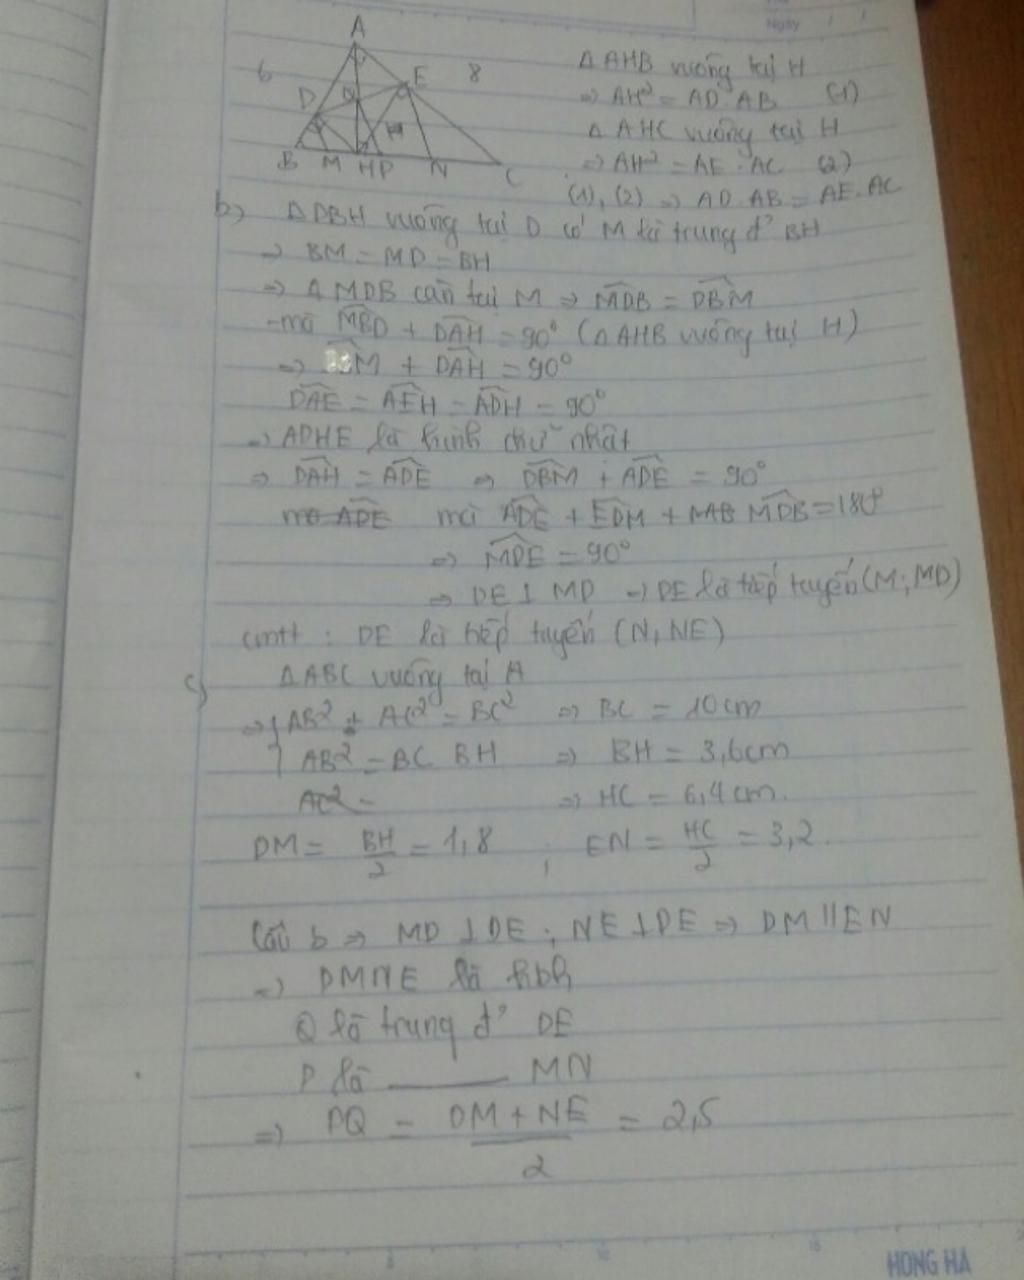 Ngày / /
A
6
E
8
D
Q
H
B M H P N C
Δ AHB vuông tại H
=> AH² = AD.AB (1)
Δ AHC vuông tại H
=> AH² = AE.AC (2)
(1), (2) => AD.AB = AE.AC
b) Δ DBH vuông tại D có M là trung đ' BH
=> BM = MD = BH
=> Δ MDB cân tại M => MDB = DBM
- mà MBD + DAH = 90° (Δ AHB vuông tại H)
=> M + DAH = 90°
DAE = AEH = ADH = 90°
=> ADHE là hình chữ nhật
=> DAH = ADE => DBM + ADE = 90°
mà ADE mà ADE + EDM + MAB MDB = 180°
=> MDE = 90°
=> DE ⊥ MD => DE là tiếp tuyến (M; MD)
cmtt : DE là tiếp tuyến (N, NE)
c) Δ ABC vuông tại A
=> { AB² + AC² = BC² => BC = 10cm
AB² = BC BH => BH = 3,6cm
AC² = => HC = 6,4cm.
DM = BH/2 = 1,8 ; EN = HC/2 = 3,2.
Câu b => MD ⊥ DE ; NE ⊥ DE => DM // EN
=> DMNE là hbh
Q là trung đ' DE
P là ——— MN
=> PQ = DM + NE / 2 = 2,5
HONG HA